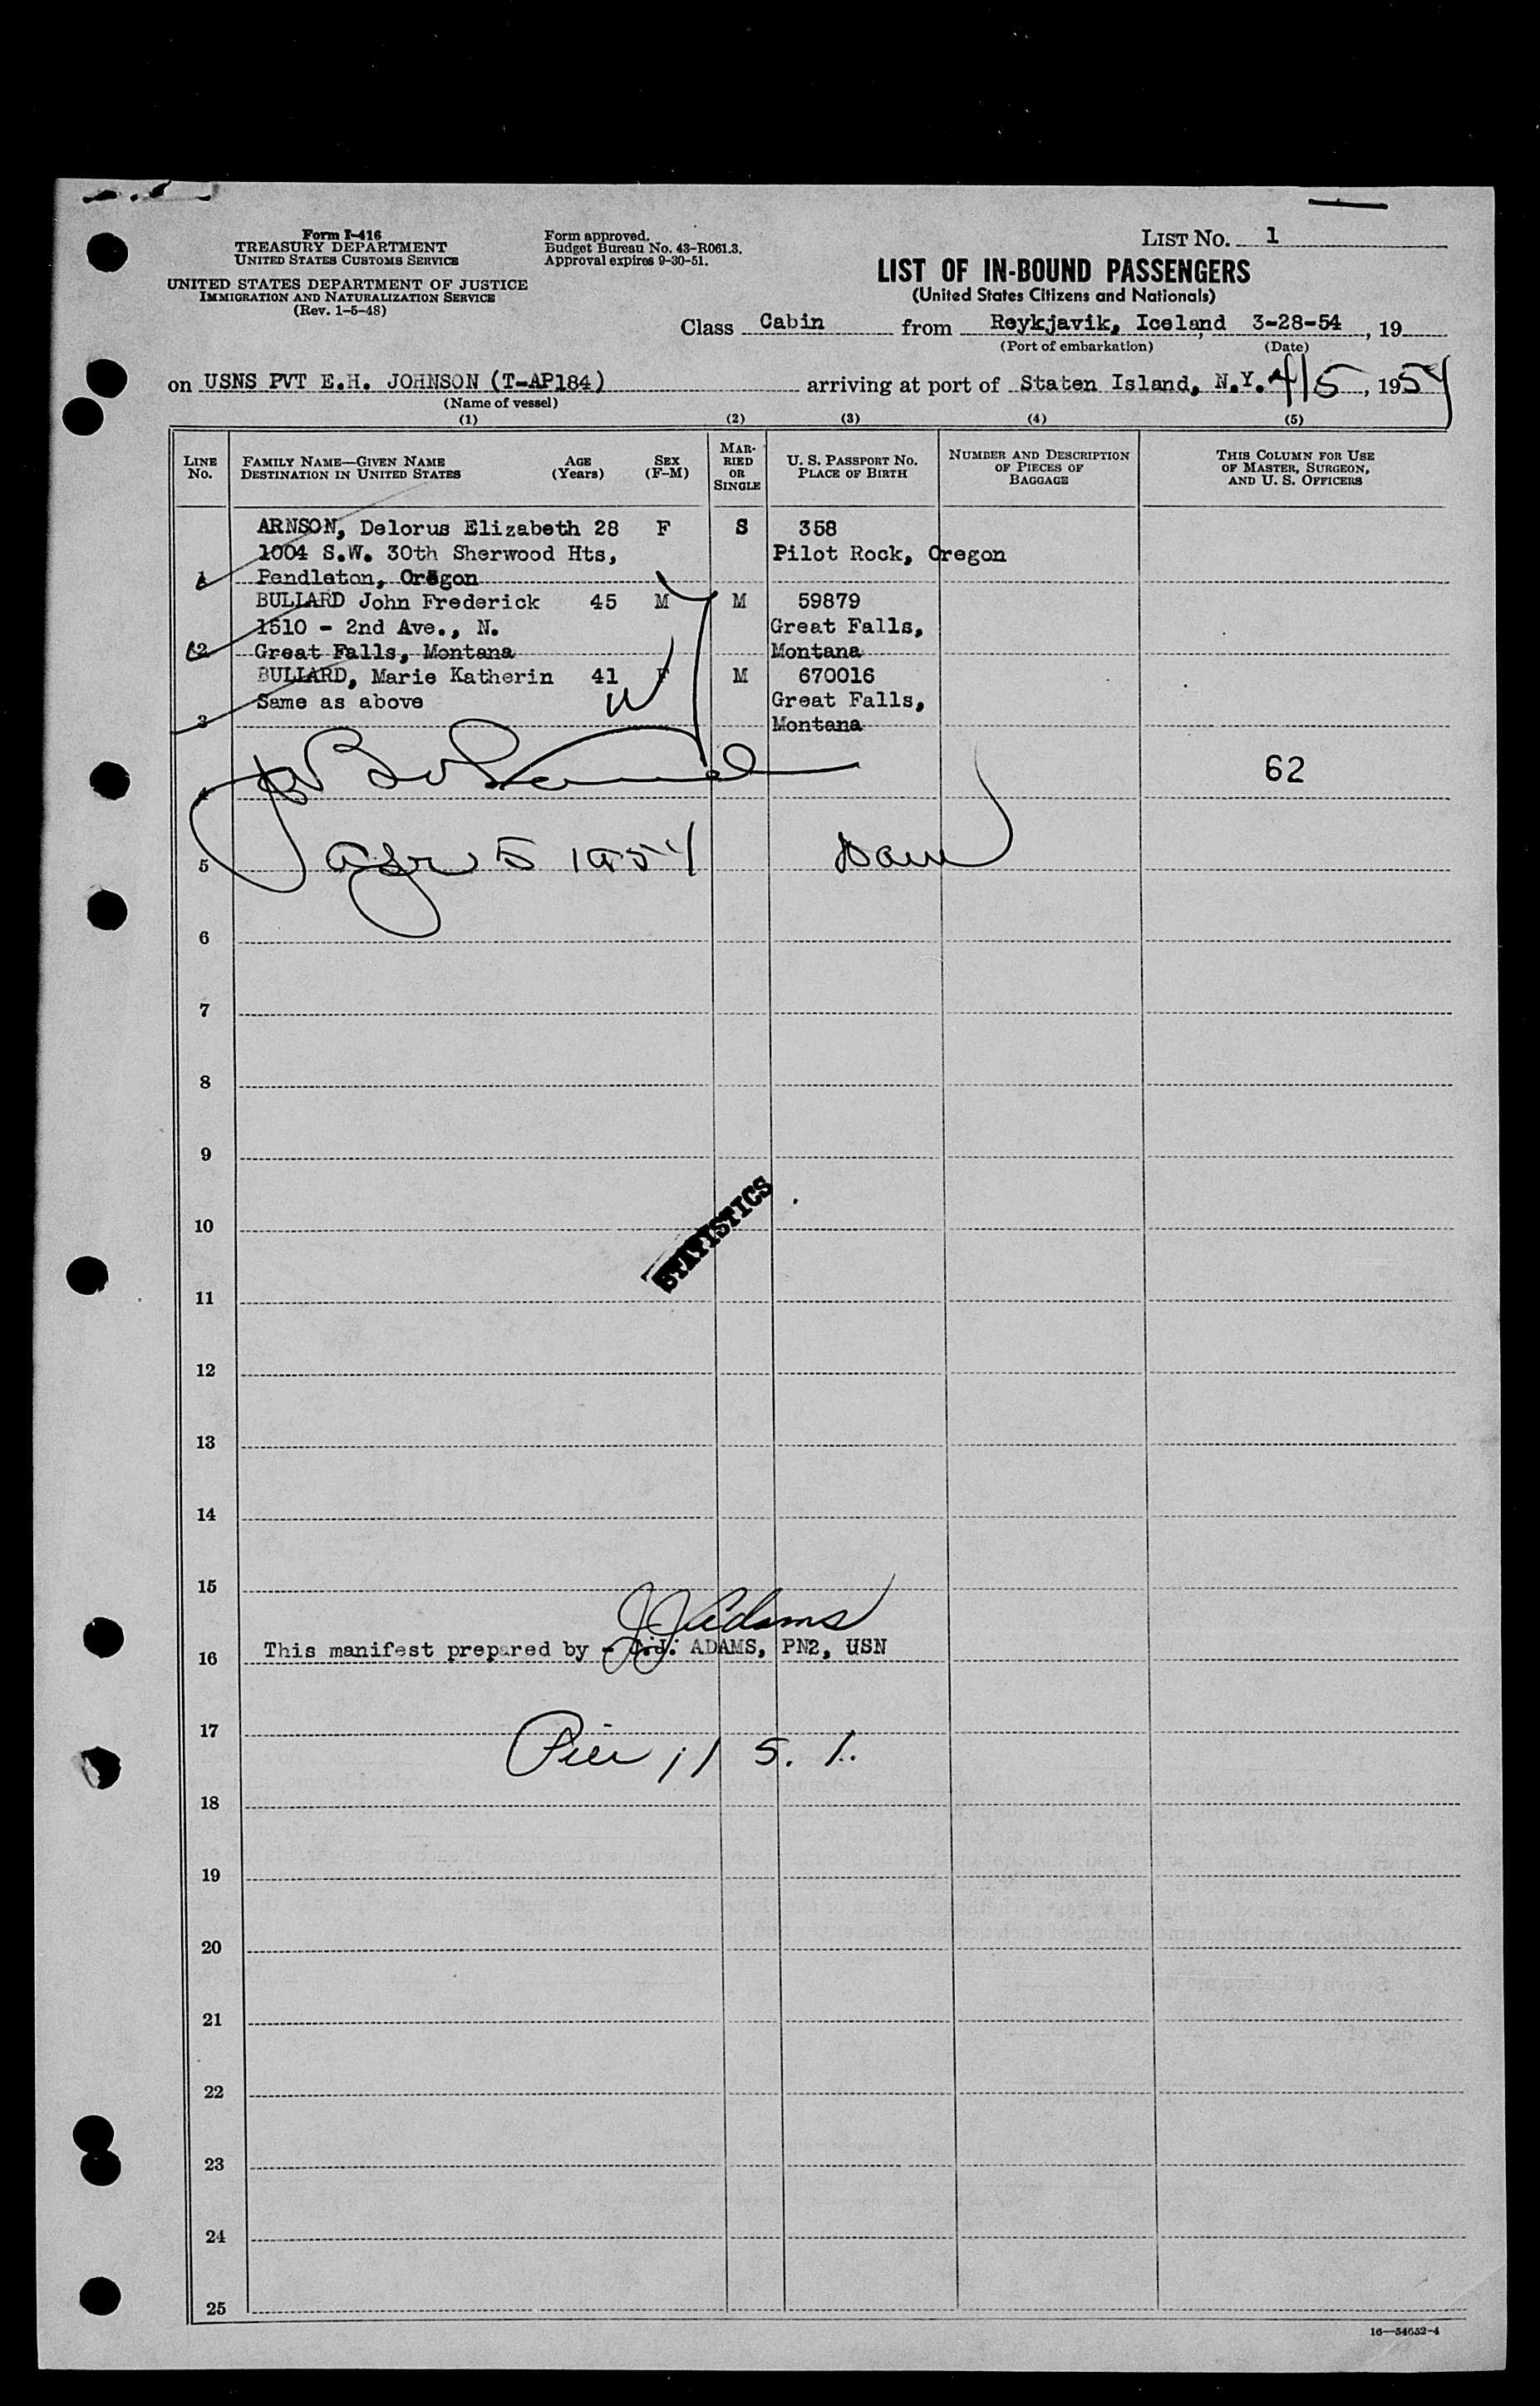 Form I-416
TREASURY DEPARTMENT
UNITED STATES CUSTOMS SERVICE
UNITED STATES DEPARTMENT OF JUSTICE
IMMIGRATION AND NATURALIZATION SERVICE
(Rev. 1-5-48)
Form approved.
Budget Bureau No. 43-R061.3.
Approval expires 9-30-51.
LIST NO. 1
LIST OF IN-BOUND PASSENGERS
(United States Citizens and Nationals)
Class Cabin from Reykjavik, Iceland, 3-28-54, 19
(Port of embarkation) (Date)
on USNS PVT E.H. JOHNSON (T-AP184) arriving at port of Staten Island, N.Y. 4/5, 1954
(Name of vessel)
(1) (2) (3) (4) (5)
LINE NO. FAMILY NAME—GIVEN NAME DESTINATION IN UNITED STATES AGE (Years) SEX (F-M) MARRIED OR SINGLE U. S. PASSPORT NO. PLACE OF BIRTH NUMBER AND DESCRIPTION OF PIECES OF BAGGAGE THIS COLUMN FOR USE OF MASTER, SURGEON, AND U. S. OFFICERS
ARNSON, Delorus Elizabeth 28 F S 358
1004 S.W. 30th Sherwood Hts, Pilot Rock, Oregon
1 Pendleton, Oregon
BULLARD John Frederick 45 M M 59879
1510 - 2nd Ave., N. Great Falls,
2 Great Falls, Montana Montana
BULLARD, Marie Katherin 41 F M 670016
Same as above Great Falls,
3 Montana
62
4
5 Apr 5 1954
6
7
8
9
10
STATISTICS
11
12
13
14
15
JJ Adams
16 This manifest prepared by - J.J. ADAMS, PN2, USN
17
Pier 11 S. I.
18
19
20
21
22
23
24
25
16—54652-4